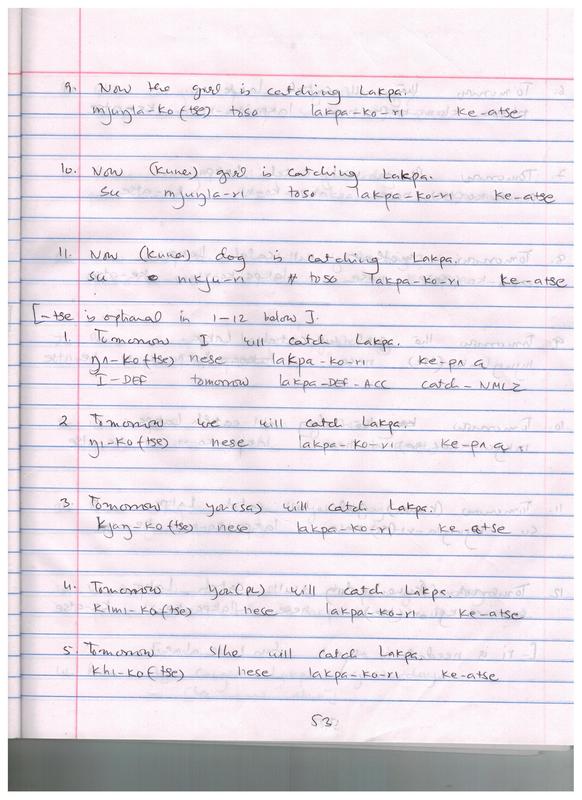 9. Now the girl is catching Lakpa.
mjuŋla-ko(tse) toso lakpa-ko-ri ke-atse
10. Now (kunai) girl is catching Lakpa.
su mjuŋla-ri toso lakpa-ko-ri ke-atse
11. Now (kunai) dog is catching Lakpa.
su nikju-ri toso lakpa-ko-ri ke-atse
[-tse is optional in 1-12 below].
1. Tomorrow I will catch Lakpa.
ŋʌ-ko(tse) nese lakpa-ko-ri ke-pʌ
I-DEF tomorrow lakpa-DEF-ACC catch-NMLZ
2 Tomorrow we will catch Lakpa.
ŋi-ko(tse) nese lakpa-ko-ri ke-pʌ
3. Tomorrow you(sg) will catch Lakpa.
kjaŋ-ko(tse) nese lakpa-ko-ri ke-atse
4. Tomorrow you(pl) will catch Lakpa.
kimi-ko(tse) nese lakpa-ko-ri ke-atse
5. Tomorrow s/he will catch Lakpa.
khi-ko(tse) nese lakpa-ko-ri ke-atse
53